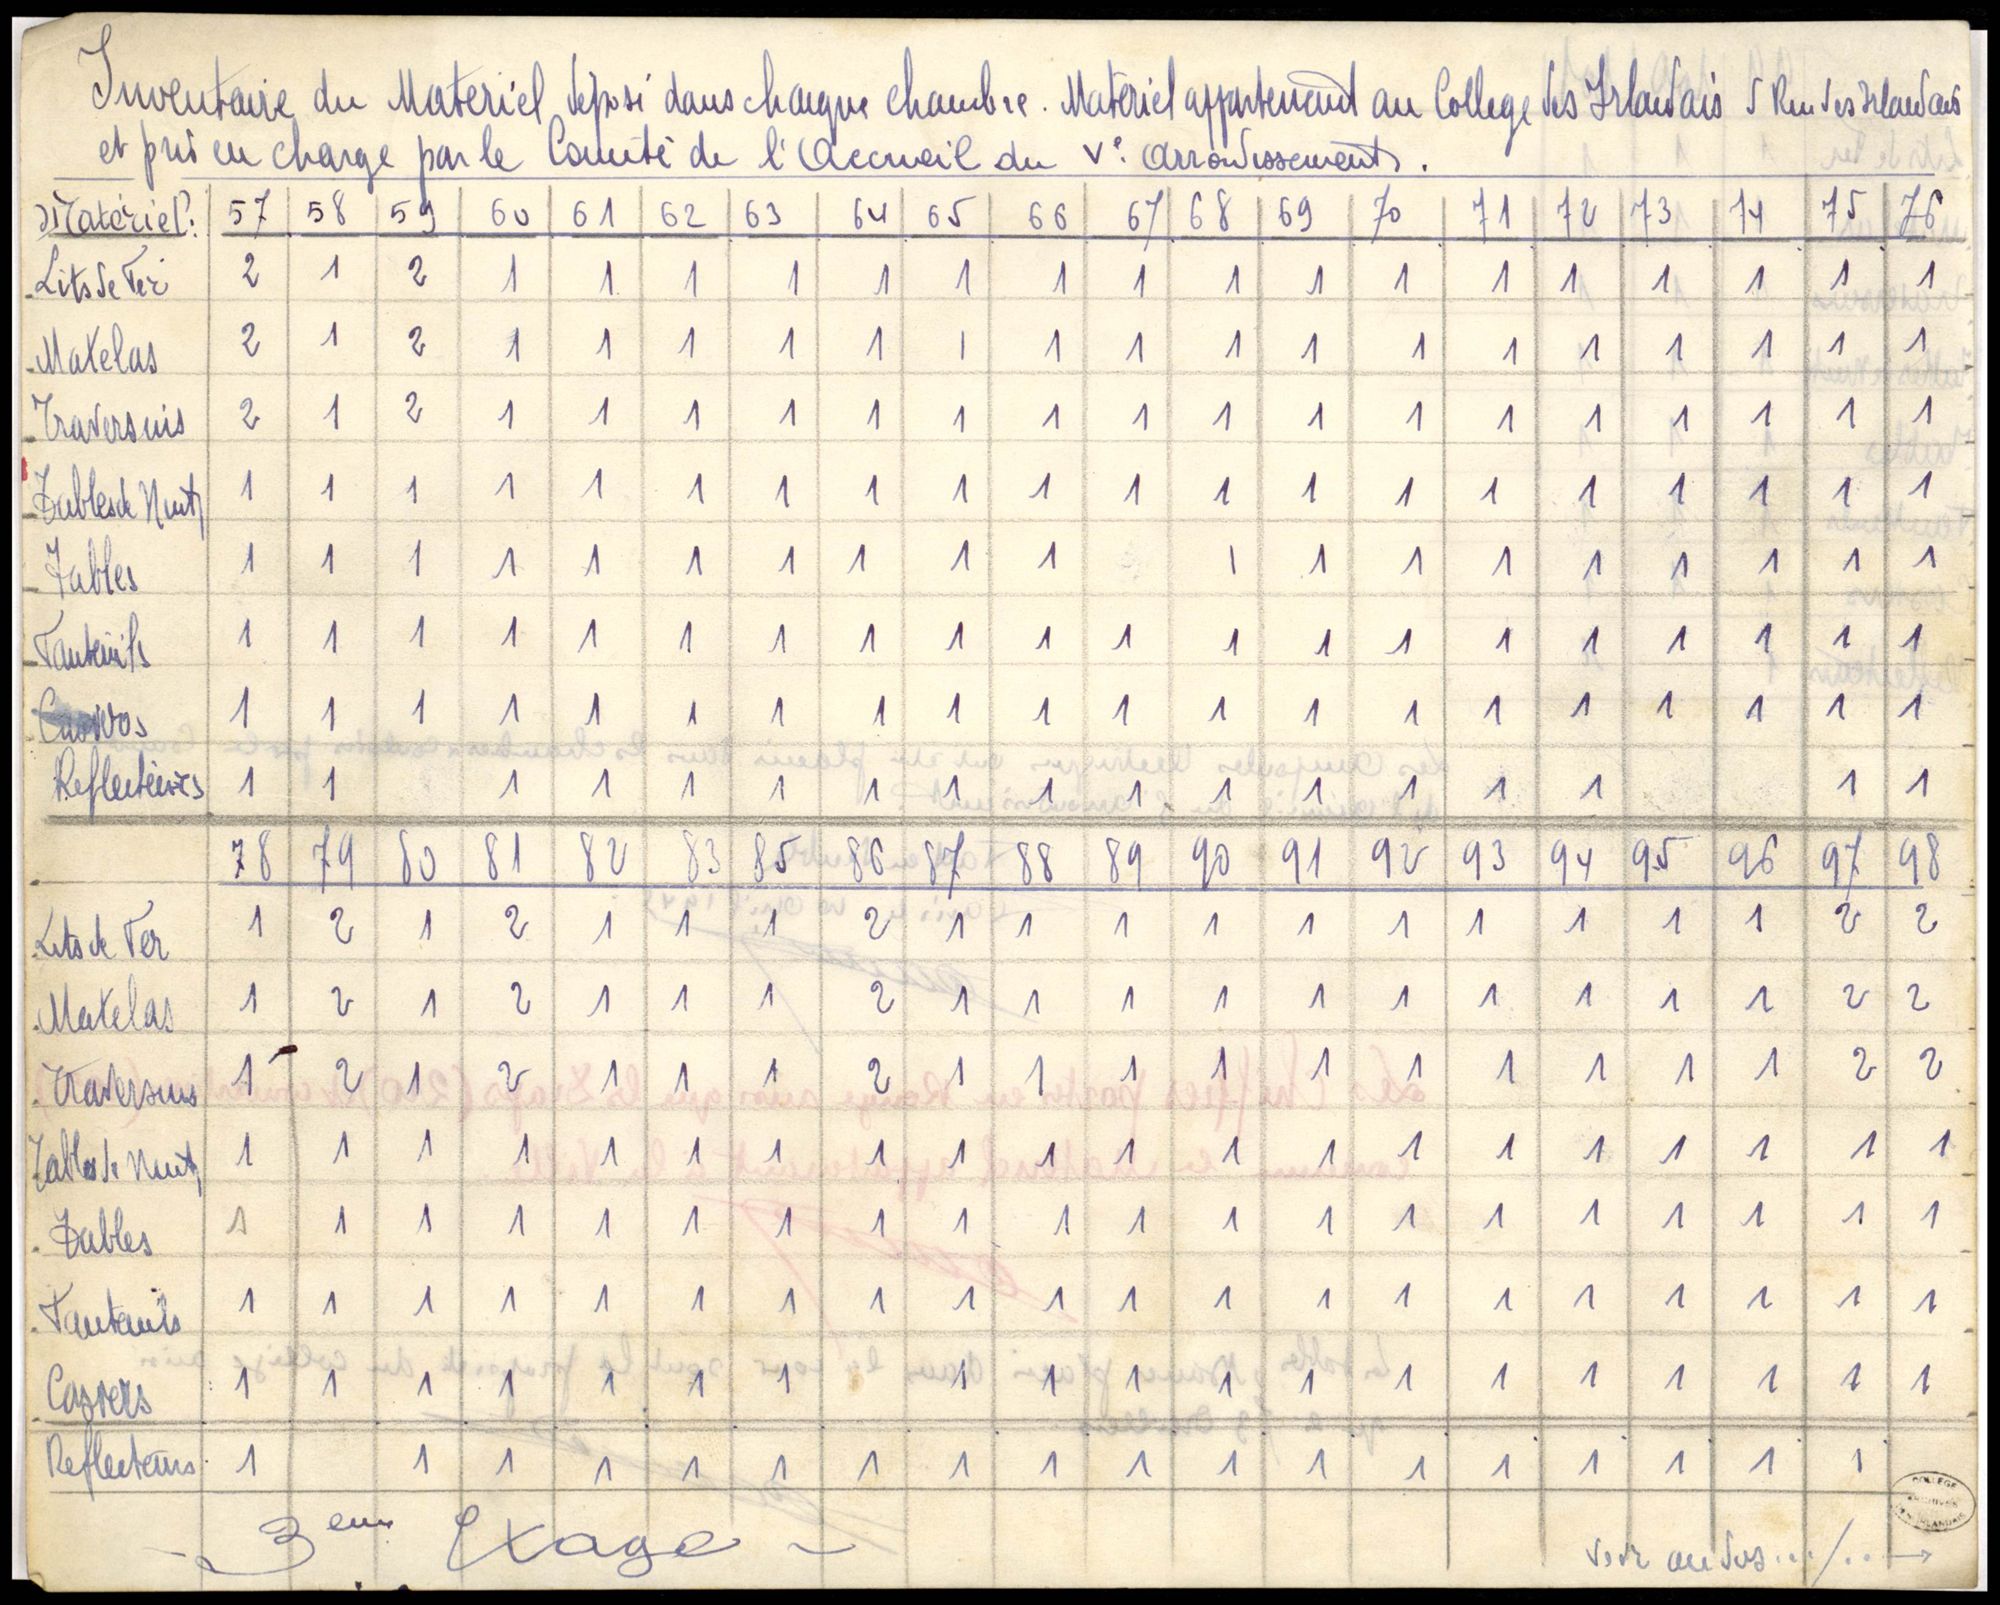 Inventaire du Materiel déposé dans chaque chambre. Materiel appartenant au College des Irlandais 5 Rue des Irlandais
et pris en charge par le Comité de l'Accueil du Ve. Arrondissement.
Materiel: 57 58 59 60 61 62 63 64 65 66 67 68 69 70 71 72 73 74 75 76
Lits de Fer 2 1 2 1 1 1 1 1 1 1 1 1 1 1 1 1 1 1 1 1
Matelas 2 1 2 1 1 1 1 1 1 1 1 1 1 1 1 1 1 1 1 1
Traversins 2 1 2 1 1 1 1 1 1 1 1 1 1 1 1 1 1 1 1 1
Tables de Nuit 1 1 1 1 1 1 1 1 1 1 1 1 1 1 1 1 1 1 1 1
Tables 1 1 1 1 1 1 1 1 1 1 1 1 1 1 1 1 1 1 1
Fauteuils 1 1 1 1 1 1 1 1 1 1 1 1 1 1 1 1 1 1 1 1
1 1 1 1 1 1 1 1 1 1 1 1 1 1 1 1 1 1 1 1
Reflecteurs 1 1 1 1 1 1 1 1 1 1 1 1 1 1 1 1 1
78 79 80 81 82 83 85 86 87 88 89 90 91 92 93 94 95 96 97 98
Lits de Fer 1 2 1 2 1 1 1 2 1 1 1 1 1 1 1 1 1 1 2 2
Matelas 1 2 1 2 1 1 1 2 1 1 1 1 1 1 1 1 1 1 2 2
Traversins 1 2 1 2 1 1 1 2 1 1 1 1 1 1 1 1 1 1 2 2
Tables de Nuit 1 1 1 1 1 1 1 1 1 1 1 1 1 1 1 1 1 1 1 1
Tables 1 1 1 1 1 1 1 1 1 1 1 1 1 1 1 1 1 1 1 1
Fauteuils 1 1 1 1 1 1 1 1 1 1 1 1 1 1 1 1 1 1 1 1
Casiers 1 1 1 1 1 1 1 1 1 1 1 1 1 1 1 1 1 1 1
Reflecteurs 1 1 1 1 1 1 1 1 1 1 1 1 1 1 1 1 1 1
COLLEGE
ARCHIVES
IRLANDAIS
- 3eme Etage -
voir au dos.../...→